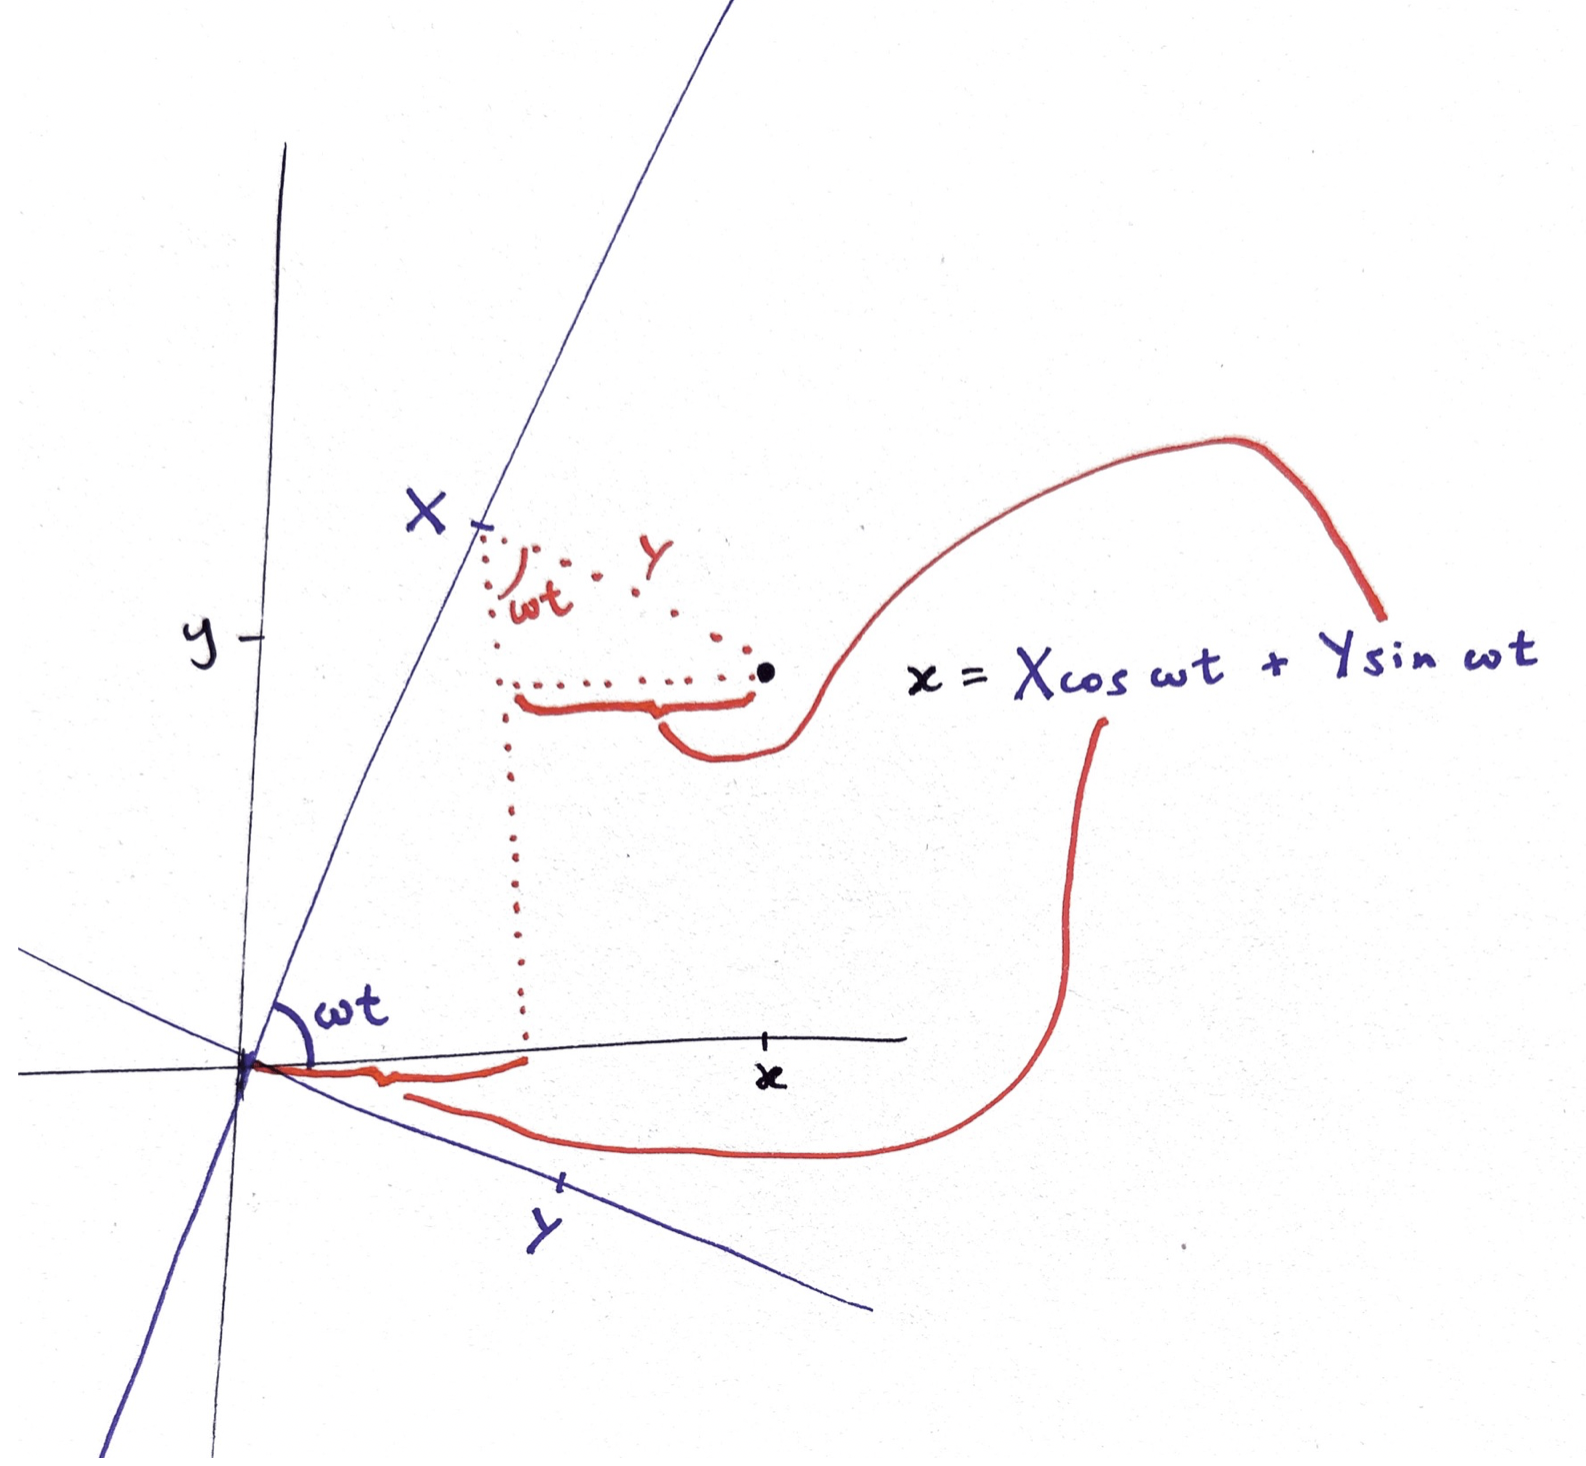 X
Y
ωt
y
x = X cos ωt + Y sin ωt
ωt
x
Y